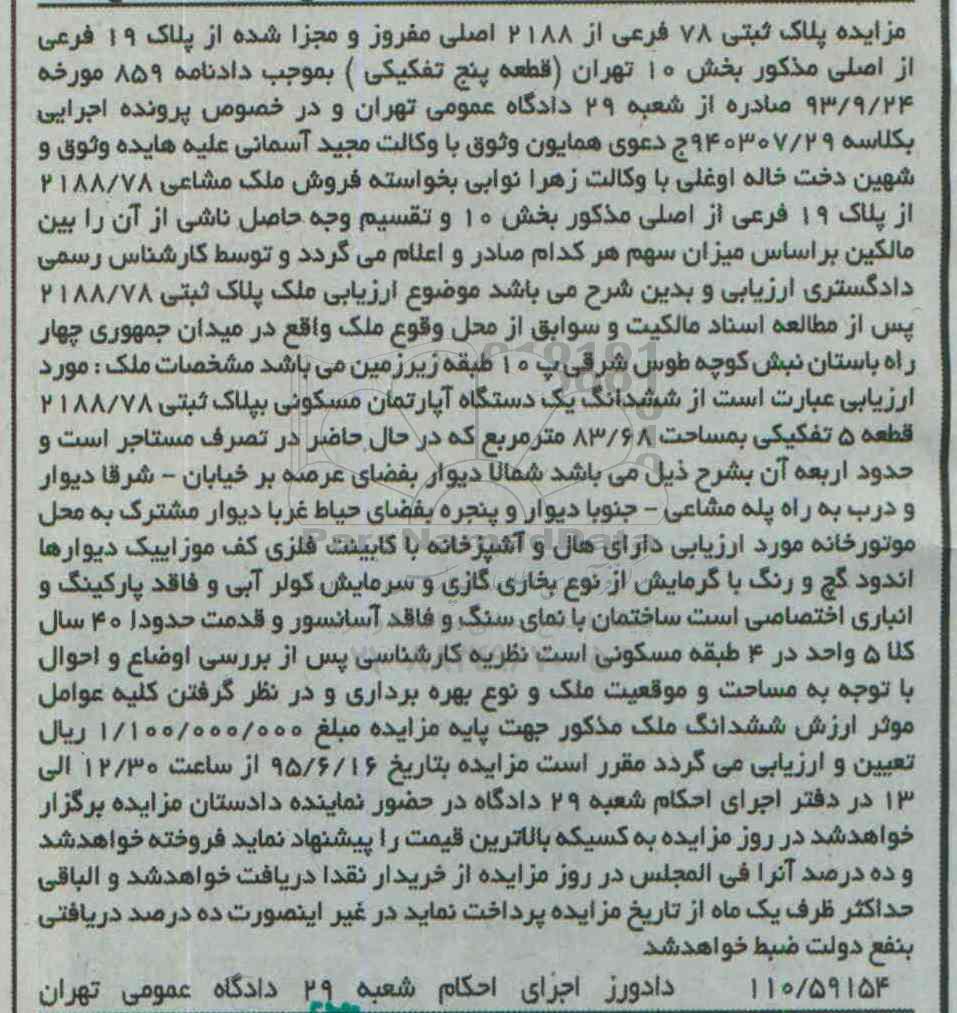 مزایده پلاک ثبتی ۷۸ فرعی از ۲۱۸۸ اصلی مفروز و مجزا شده از پلاک ۱۹ فرعی
از اصلی مذکور بخش ۱۰ تهران (قطعه پنج تفکیکی ) بموجب دادنامه ۸۵۹ مورخه
۹۳/۹/۲۴ صادره از شعبه ۲۹ دادگاه عمومی تهران و در خصوص پرونده اجرایی
بکلاسه ۹۴۰۳۰۷/۲۹ج دعوی همایون وثوق با وکالت مجید آسمانی علیه هایده وثوق و
شهین دخت خاله اوغلی با وکالت زهرا نوابی بخواسته فروش ملک مشاعی ۲۱۸۸/۷۸
از پلاک ۱۹ فرعی از اصلی مذکور بخش ۱۰ و تقسیم وجه حاصل ناشی از آن را بین
مالکین براساس میزان سهم هر کدام صادر و اعلام می گردد و توسط کارشناس رسمی
دادگستری ارزیابی و بدین شرح می باشد موضوع ارزیابی ملک پلاک ثبتی ۲۱۸۸/۷۸
پس از مطالعه اسناد مالکیت و سوابق از محل وقوع ملک واقع در میدان جمهوری چهار
راه باستان نبش کوچه طوس شرقی پ ۱۰ طبقه زیرزمین می باشد مشخصات ملک : مورد
ارزیابی عبارت است از ششدانگ یک دستگاه آپارتمان مسکونی بپلاک ثبتی ۲۱۸۸/۷۸
قطعه ۵ تفکیکی بمساحت ۸۳/۶۸ مترمربع که در حال حاضر در تصرف مستاجر است و
حدود اربعه آن بشرح ذیل می باشد شمالا دیوار بفضای عرصه بر خیابان - شرقا دیوار
و درب به راه پله مشاعی - جنوبا دیوار و پنجره بفضای حیاط غربا دیوار مشترک به محل
موتورخانه مورد ارزیابی دارای هال و آشپزخانه با کابینت فلزی کف موزاییک دیوارها
اندود گچ و رنگ با گرمایش از نوع بخاری گازی و سرمایش کولر آبی و فاقد پارکینگ و
انباری اختصاصی است ساختمان با نمای سنگ و فاقد آسانسور و قدمت حدودا ۴۰ سال
کلا ۵ واحد در ۴ طبقه مسکونی است نظریه کارشناسی پس از بررسی اوضاع و احوال
با توجه به مساحت و موقعیت ملک و نوع بهره برداری و در نظر گرفتن کلیه عوامل
موثر ارزش ششدانگ ملک مذکور جهت پایه مزایده مبلغ ۱/۱۰۰/۰۰۰/۰۰۰ ریال
تعیین و ارزیابی می گردد مقرر است مزایده بتاریخ ۹۵/۶/۱۶ از ساعت ۱۲/۳۰ الی
۱۳ در دفتر اجرای احکام شعبه ۲۹ دادگاه در حضور نماینده دادستان مزایده برگزار
خواهدشد در روز مزایده به کسیکه بالاترین قیمت را پیشنهاد نماید فروخته خواهدشد
و ده درصد آنرا فی المجلس در روز مزایده از خریدار نقدا دریافت خواهدشد و الباقی
حداکثر ظرف یک ماه از تاریخ مزایده پرداخت نماید در غیر اینصورت ده درصد دریافتی
بنفع دولت ضبط خواهدشد
۱۱۰/۵۹۱۵۴ دادورز اجرای احکام شعبه ۲۹ دادگاه عمومی تهران